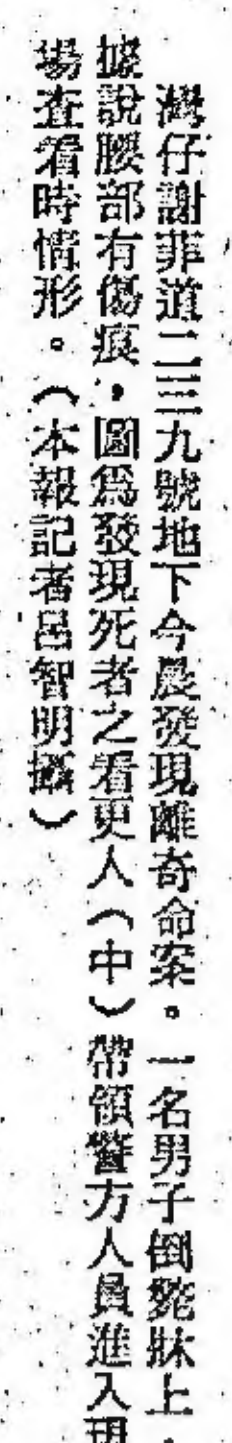 灣仔謝菲道二三九號地下今晨發現離奇命案。一名男子倒斃牀上,
據說腰部有傷痕,圖爲發現死者之看更人(中)帶領警方人員進入現
場查看時情形。(本報記者呂智明攝)